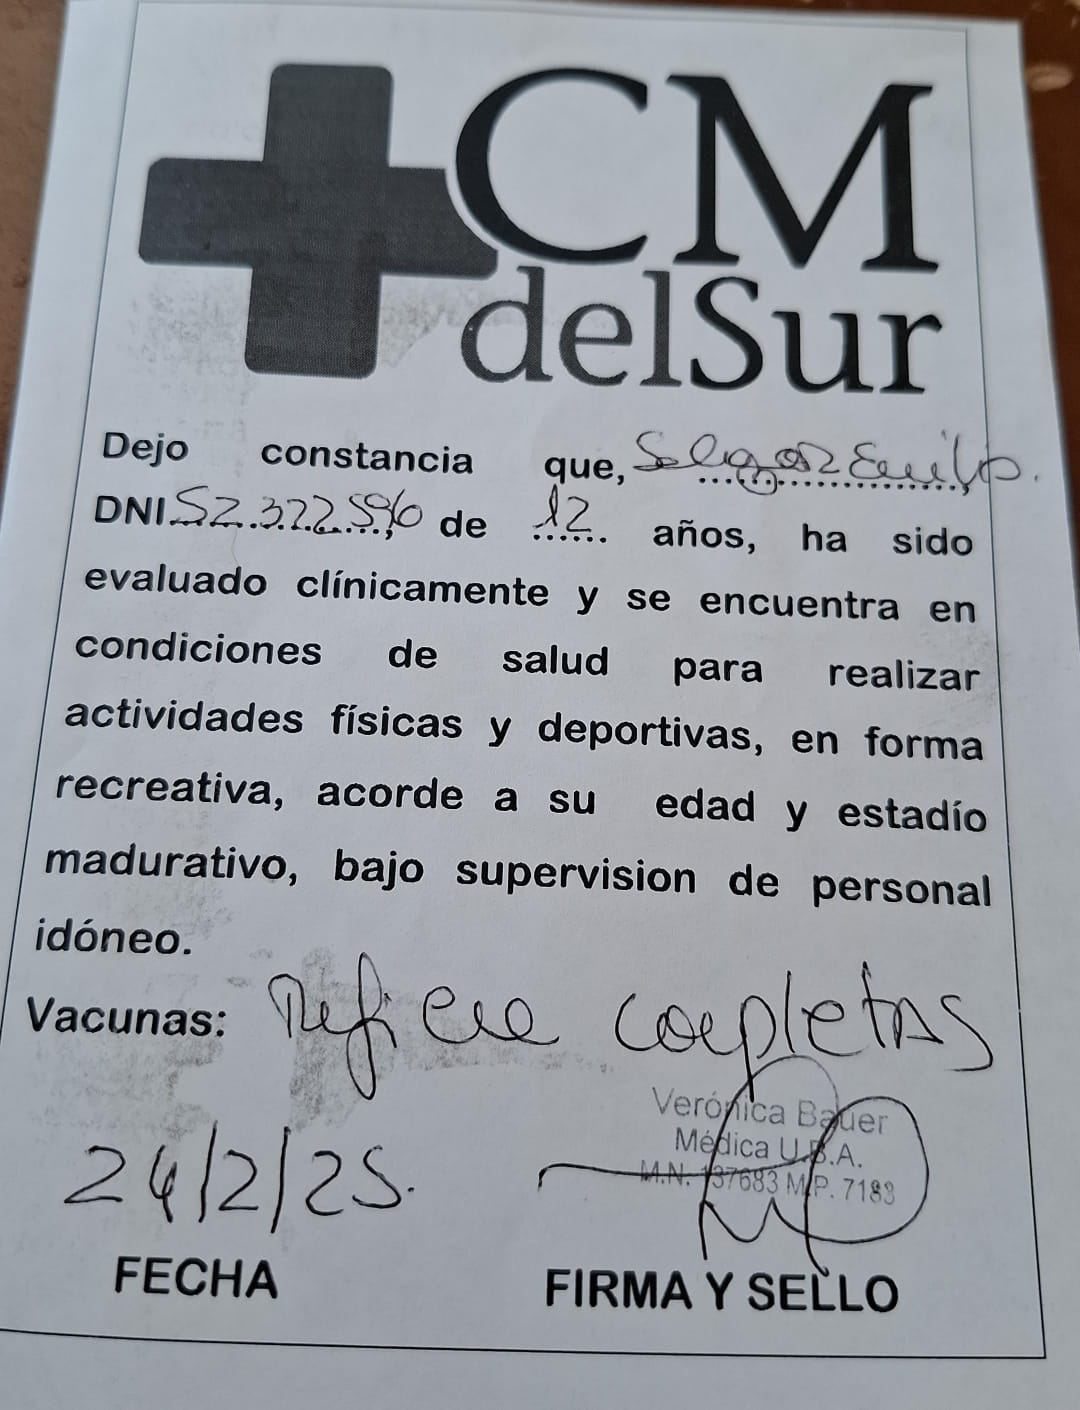 CM
delSur
Dejo constancia que,
DNI 52.322.596 de 12 años, ha sido
evaluado clínicamente y se encuentra en
condiciones de salud para realizar
actividades físicas y deportivas, en forma
recreativa, acorde a su edad y estadío
madurativo, bajo supervision de personal
idóneo.
Vacunas: Refiere completas
Verónica Bauer
Médica U.B.A.
M.N. 137683 M.P. 7183
24/2/25.
FECHA FIRMA Y SELLO